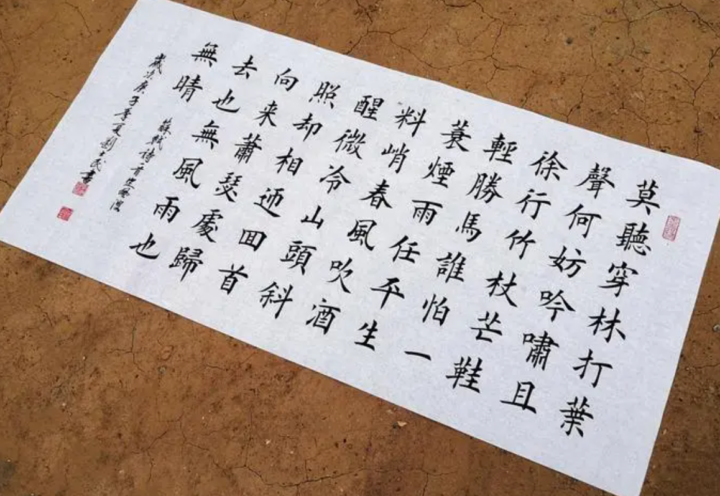 莫聽穿林打葉
聲何妨吟嘯且
徐行竹杖芒鞋
輕勝馬誰怕一
蓑煙雨任平生
料峭春風吹酒
醒微冷山頭斜
照却相迎回首
向来蕭瑟處歸
去也無風雨也
無晴
蘇軾詩一首定風波
歲次庚子季夏劉民書